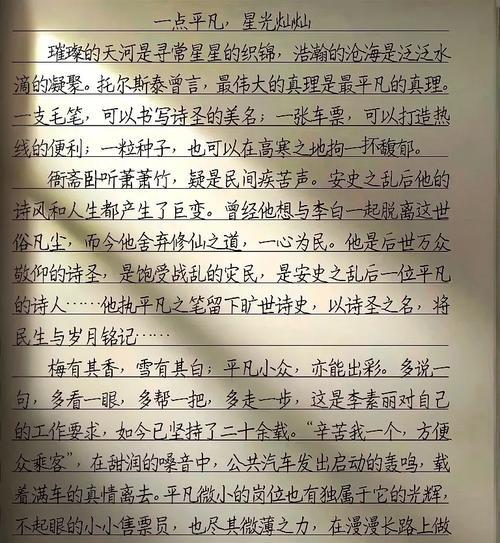 一点平凡，星光灿灿
璀璨的天河是寻常星星的织锦，浩瀚的沧海是泛泛水
滴的凝聚。托尔斯泰曾言，最伟大的真理是最平凡的真理。
一支毛笔，可以书写诗圣的美名；一张车票，可以打造热
线的便利；一粒种子，也可以在高寒之地掬一抔馥郁。
衙斋卧听萧萧竹，疑是民间疾苦声。安史之乱后他的
诗风和人生都产生了巨变。曾经他想与李白一起脱离这世
俗凡尘，而今他舍弃修仙之道，一心为民。他是后世万众
敬仰的诗圣，是饱受战乱的灾民，是安史之乱后一位平凡
的诗人……他执平凡之笔留下旷世诗史，以诗圣之名，将
民生与岁月铭记……
梅有其香，雪有其白；平凡小众，亦能出彩。多说一
句，多看一眼，多帮一把，多走一步，这是李素丽对自己
的工作要求，如今已坚持了二十余载。“辛苦我一个，方便
众乘客”，在甜润的嗓音中，公共汽车发出启动的轰鸣，载
着满车的真情离去。平凡微小的岗位也有独属于它的光辉，
不起眼的小小售票员，也尽其微薄之力，在漫漫长路上做